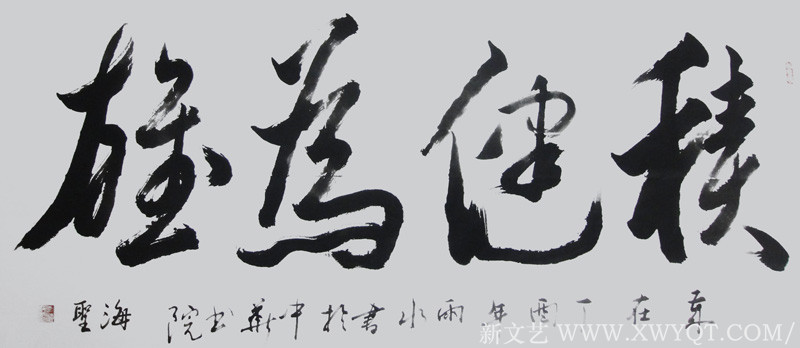 積健為雄
歲在丁酉年雨水書於中華书院 海聖
新文艺 WWW.XWYQT.COM/